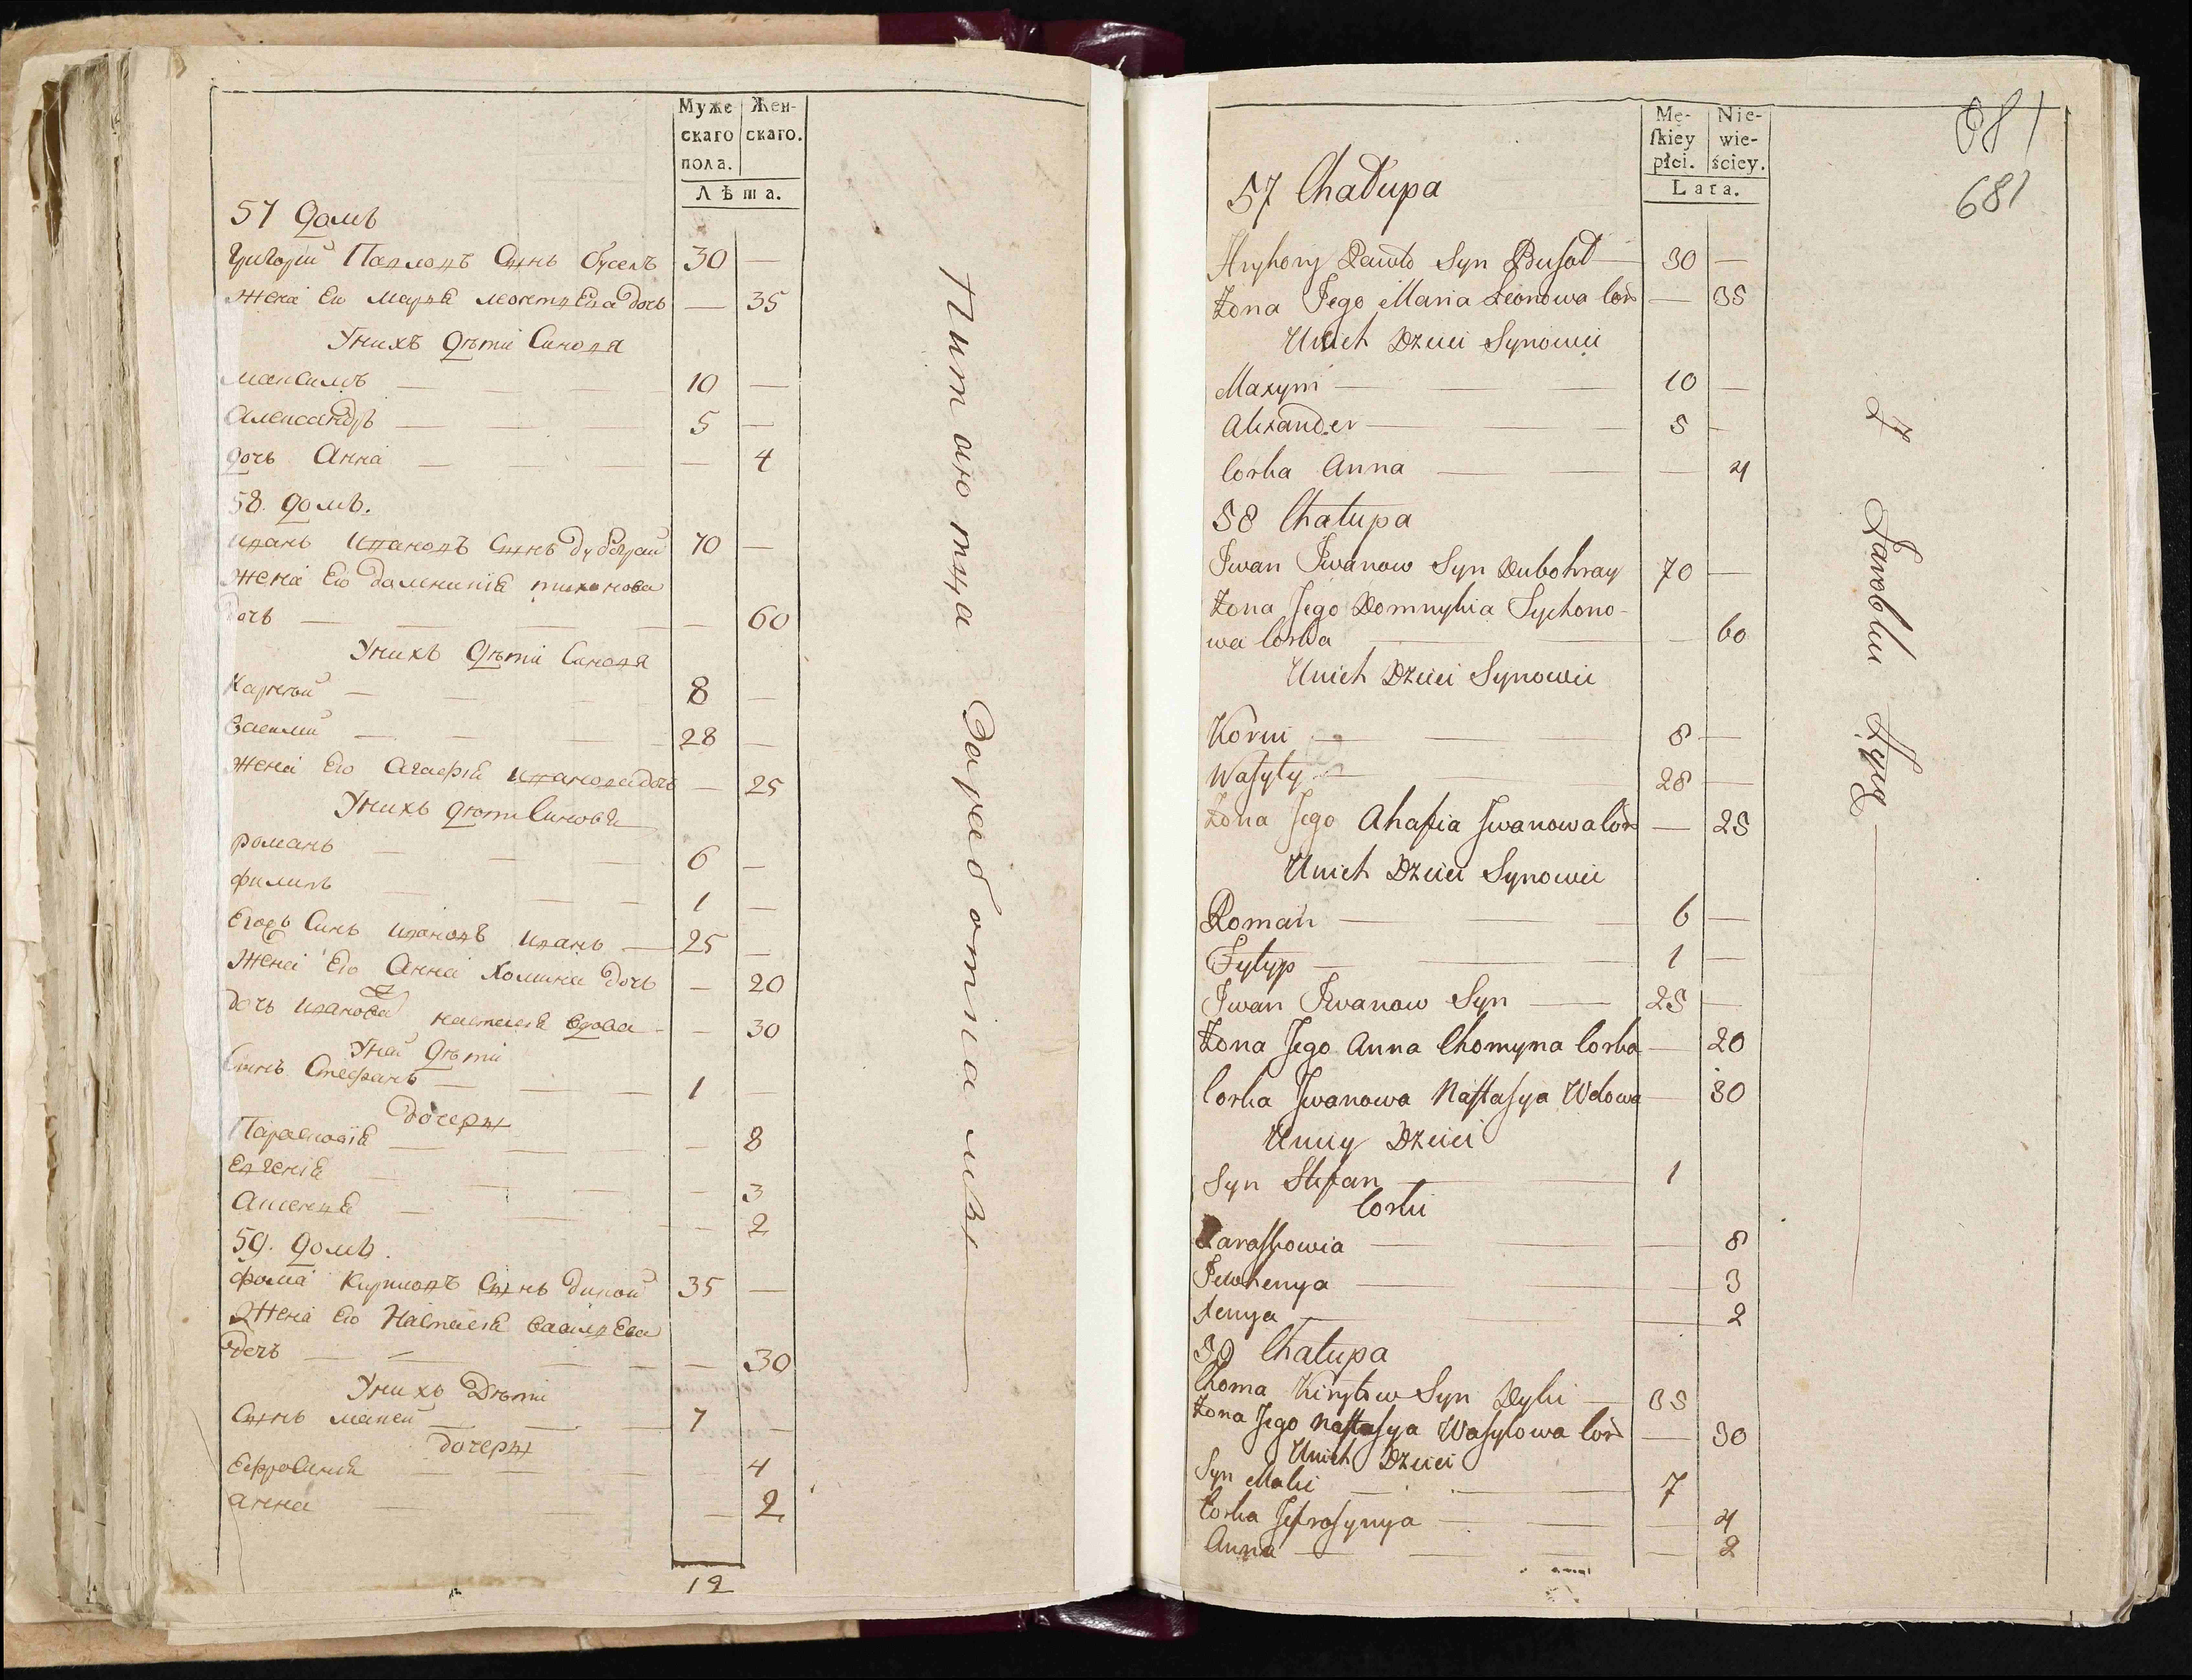 Муже Жен-
скаго скаго.
пола.
Лѣта.
57 домъ
Григорий Павловъ Сынъ буселъ 30 —
Жена Его Марья леонтьева дочь — 35
Унихъ дѣти Синовя
Максимъ — 10 —
Александръ — 5 —
дочь Анна — 4
58. домъ.
иванъ Ивановъ Сынъ дубограй 70 —
Жена Его домникия тихонова
дочь — 60
Унихъ дѣти Синовя
Карней — 8 —
Василий — 28 —
Жена Его Агафия ивановадочь — 25
Унихъ дѣти Синовя
романъ — 6 —
филипъ — 1 —
Егожъ Синъ ивановъ иванъ — 25 —
Жена Его Анна Хомина дочь — 20
дочь иванова настасея вдова — 30
Уней дѣти
Синъ Стефанъ — 1 —
дочеры
Парасковия — 8
Евгения — 3
Аксения — 2
59. домъ.
фома Кириловъ Сынъ дикой 35 —
Жена Его Настасея васильева
дочь — 30
Унихъ Дѣти
Сынъ макей — 7 —
дочеры
Ефросиния — 4
анна — 2
12
Питаютца Заработками
Mę- Nie-
ſkiey wie-
płci. ściey.
Lata.
681
681
57 Chałupa
Hryhory Pawło Syn Busoł 30 —
Żona Jego Maria Leonowa Cór — 35
Unich Dzieci Synowie
Maxym — 10 —
Alexander — 5 —
Corka Anna — 4
58 Chałupa
Iwan Iwanow Syn Dubohray 70 —
Żona Jego Domnykia Tychono-
wa Corka — 60
Unich Dzieci Synowie
Korni — 8 —
Wasyly — 28 —
Żona Jego Ahafia Iwanowa Cór — 25
Unich Dzieci Synowie
Roman — 6 —
Fylyp — 1 —
Iwan Iwanow Syn — 25 —
Żona Jego Anna Chomyna Corka — 20
Corka Iwanowa Nastasya Wdowa — 30
Uniey Dzieci
Syn Stefan — 1
Corki
Paraskowia — 8
Jewhenya — 3
Xenya — 2
59 Chałupa
Choma Kiryłow Syn Dyki — 35
Żona Jego Nastasya Wasylowa Cór — 30
Unich Dzieci
Syn Maki — 7
Corka Jefrosynya — 4
Anna — 2
Z Zarobku żyją